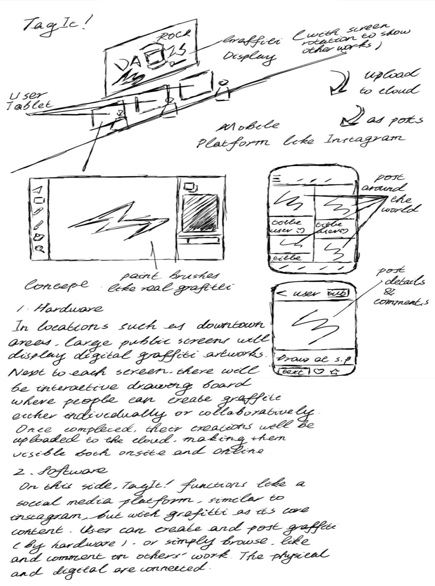 TagIt!
ROCK
Graffiti Display
(with screen rotation to show other works)
User Tablet
upload to cloud
as posts
Mobile Platform like Instagram
post around the world
paint brushes like real grafitti
Concept
< user
post details & comments
1. Hardware
In locations such as downtown
areas, large public screens will
display digital graffiti artworks.
Next to each screen, there will
be interactive drawing board
where people can create graffiti
either individually or collaboratively.
Once completed, their creations will be
uploaded to the cloud, making them
visible both onsite and online
2. Software
On this side, TagIt! functions like a
social media platform, similar to
instagram, but with grafitti as its core
content. User can create and post graffiti
(by hardware), or simply browse, like
and comment on others' work. The physical
and digital are connected.